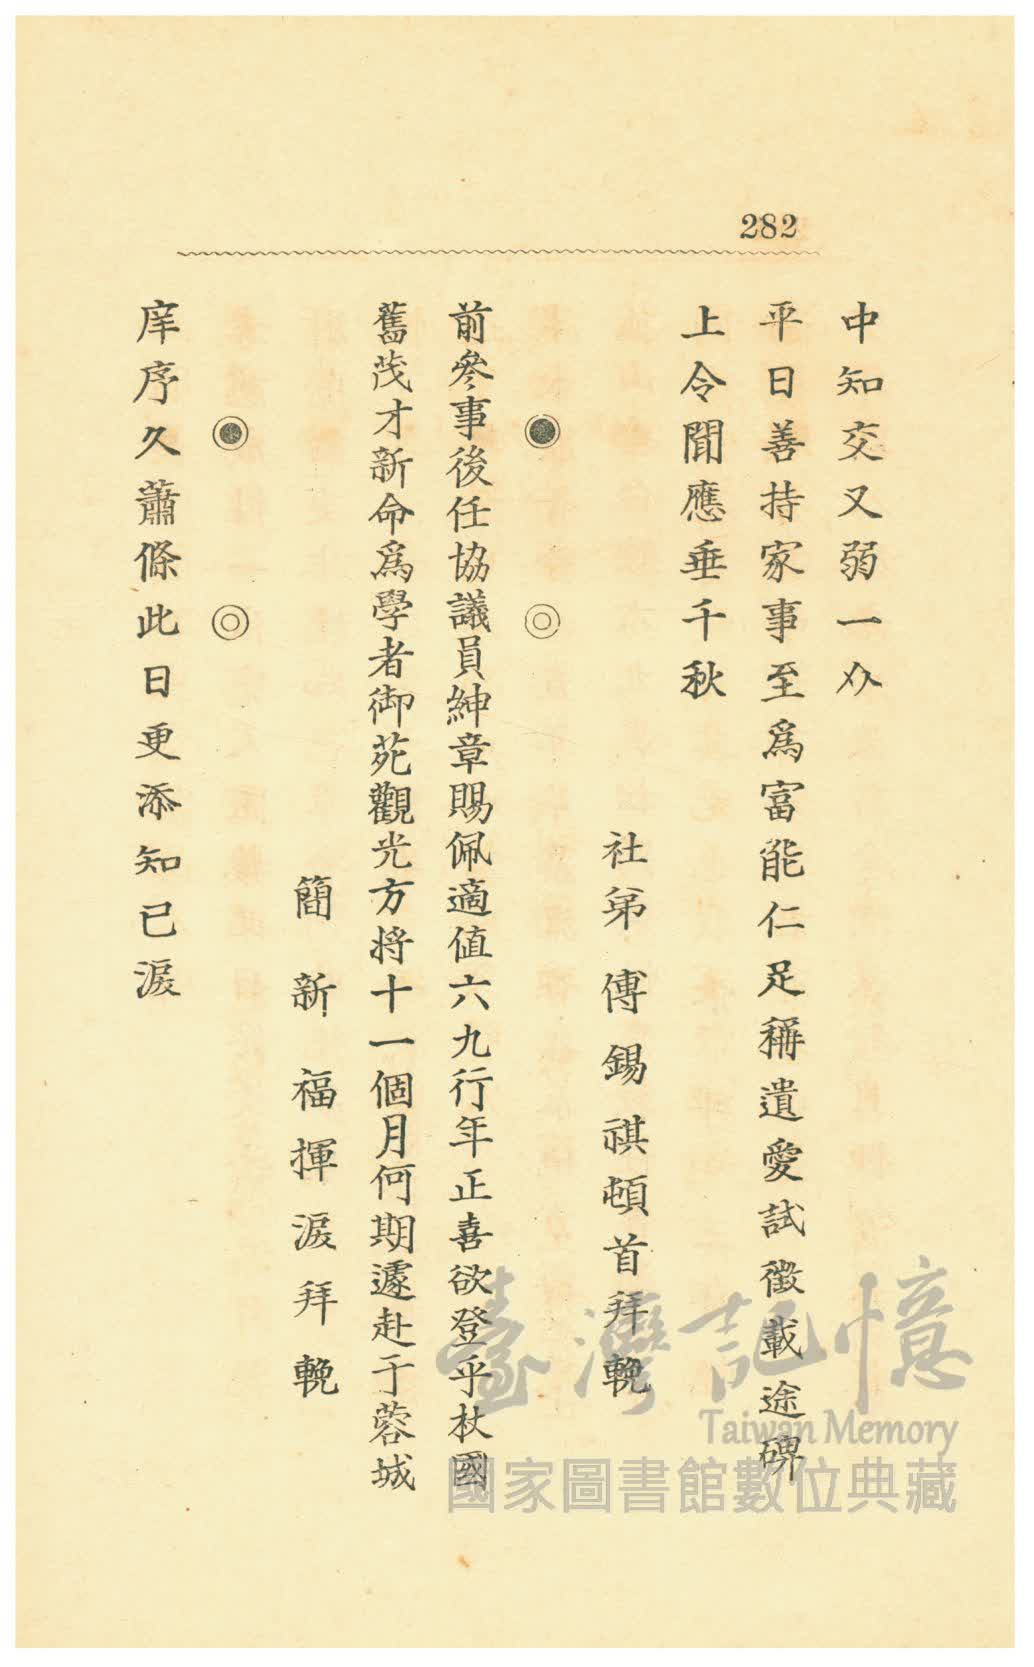 282
中知交又弱一个
平日善持家事至爲富能仁足稱遺愛試徵載途碑
上令聞應垂千秋
社弟傅錫祺頓首拜輓
前參事後任協議員紳章賜佩適值六九行年正喜欲登乎杖國
舊茂才新命爲學者御苑觀光方將十一個月何期遽赴于蓉城
簡新福揮淚拜輓
庠序久蕭條此日更添知已淚
臺灣記憶
Taiwan Memory
國家圖書館數位典藏